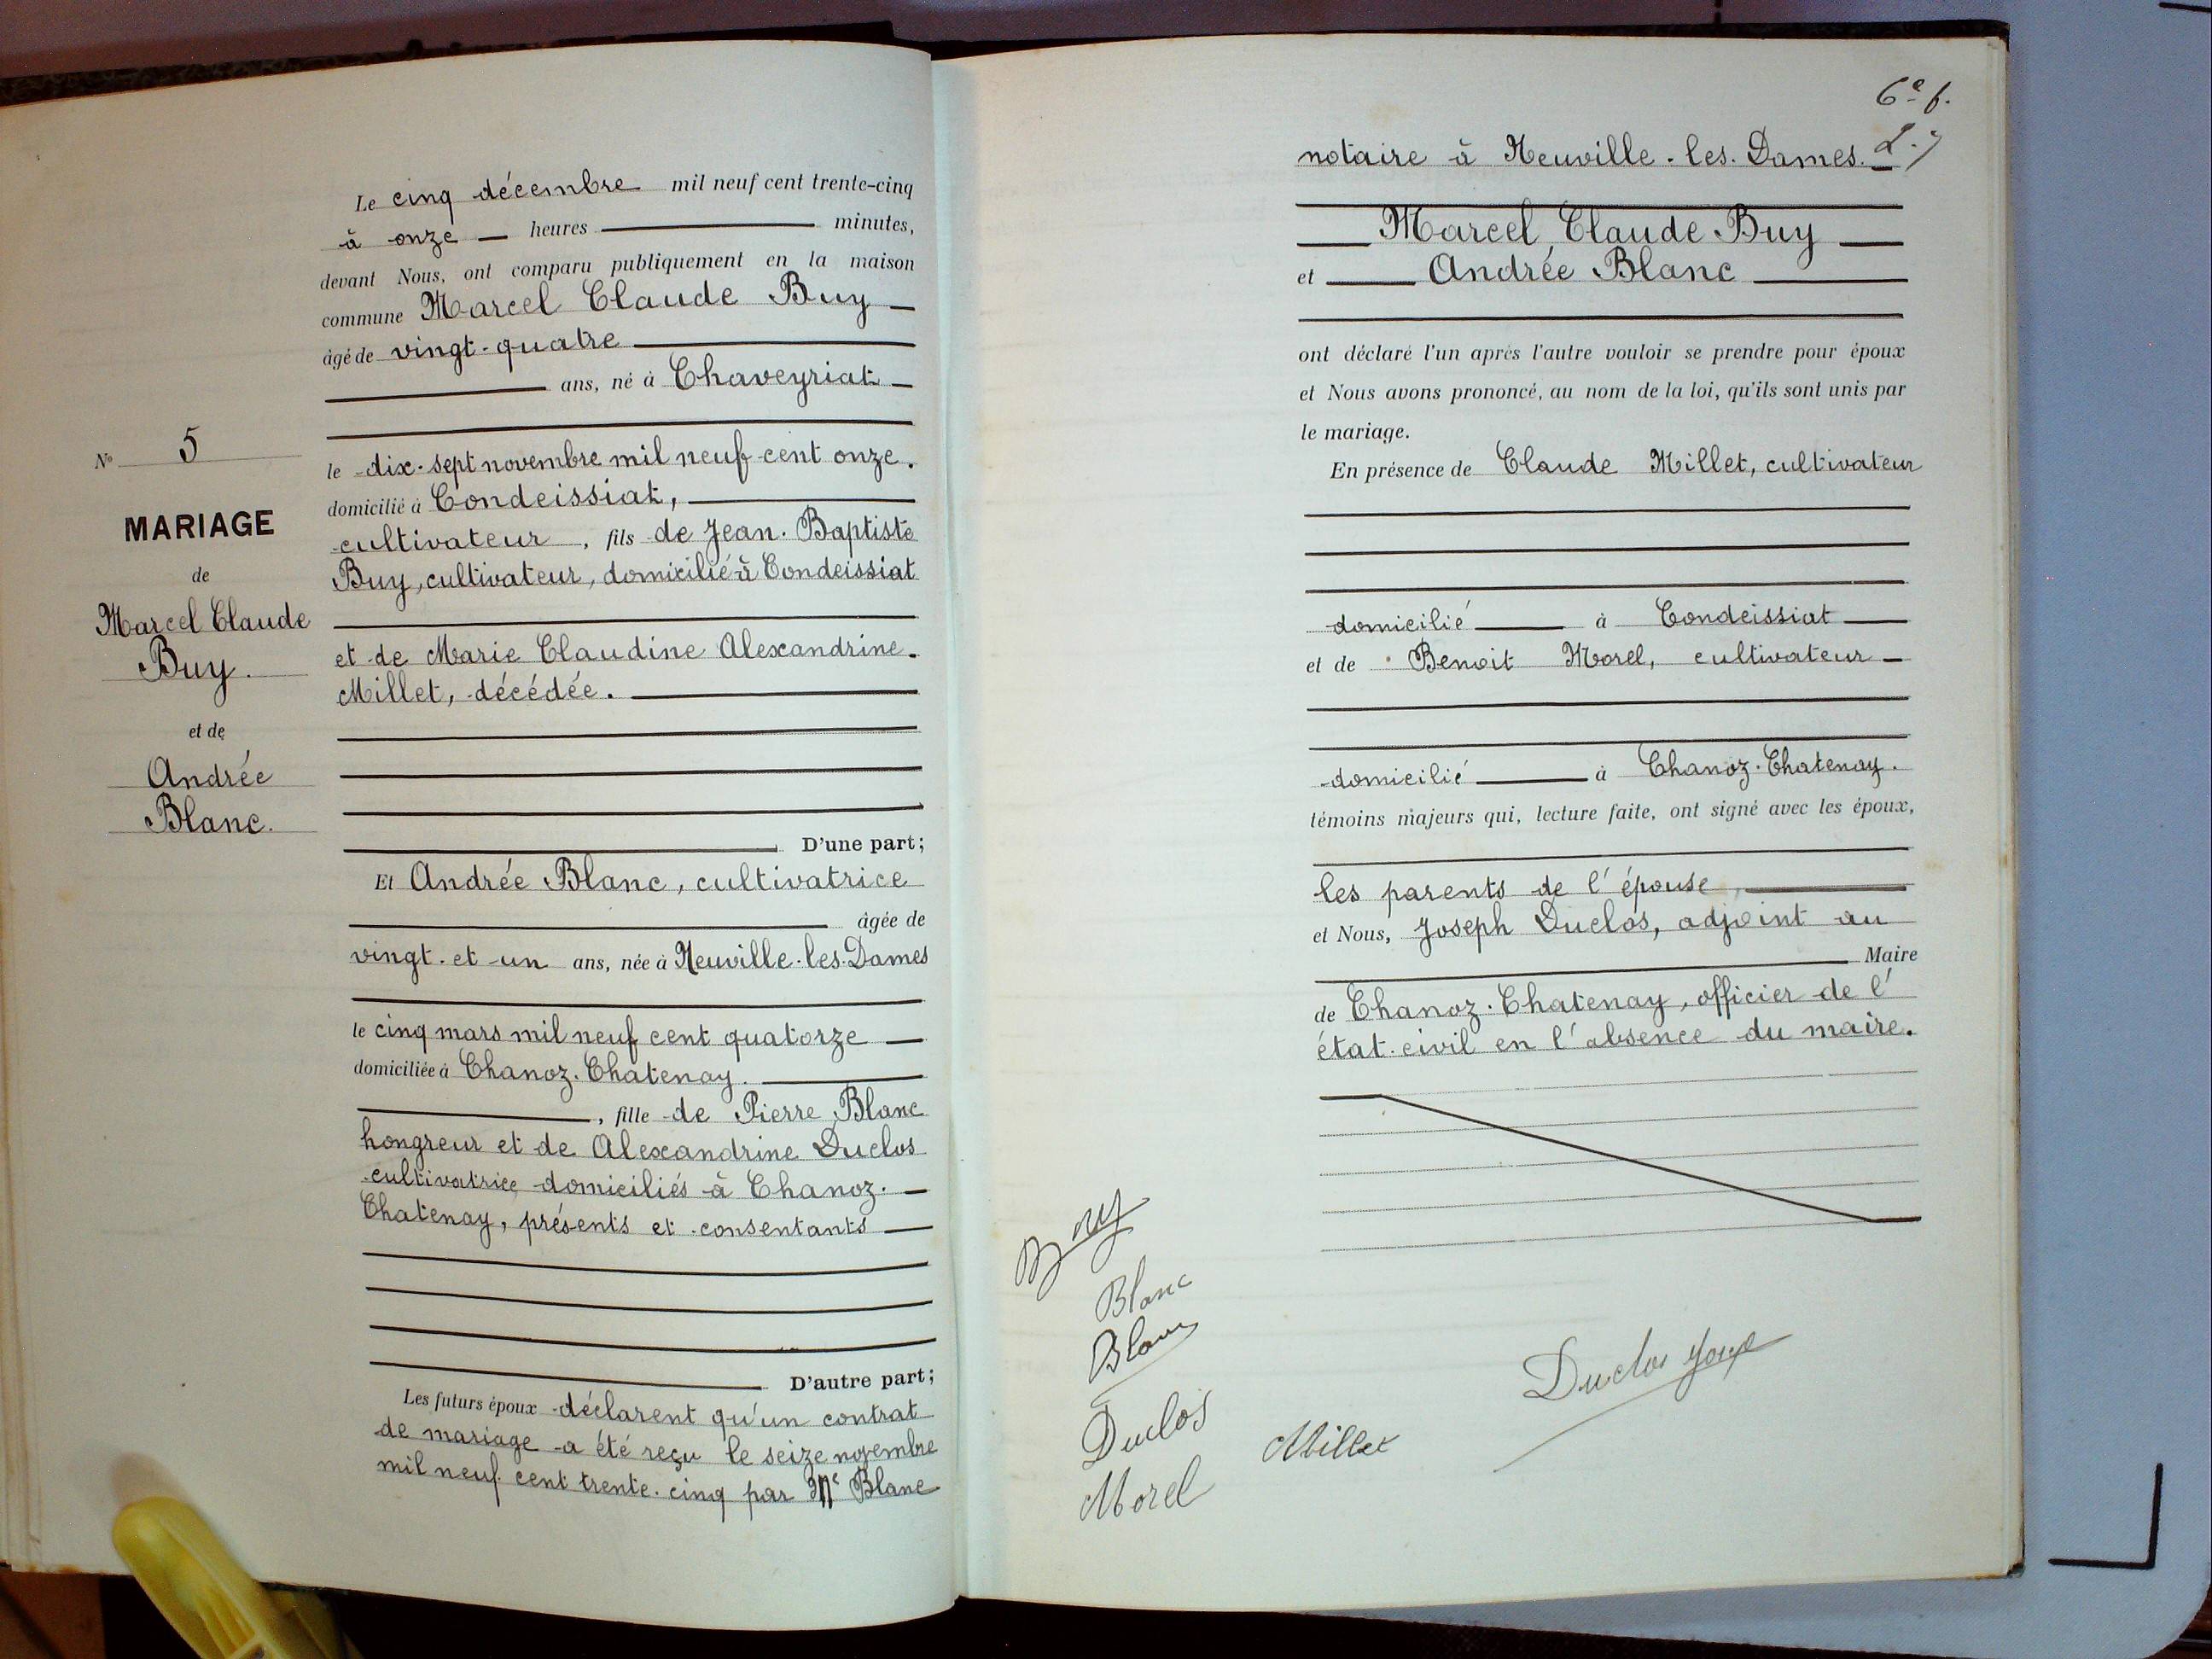 N° 5
MARIAGE
de
Marcel Claude
Buy.
et de
Andrée
Blanc.
Le cinq décembre mil neuf cent trente-cinq
à onze — heures — minutes,
devant Nous, ont comparu publiquement en la maison
commune Marcel Claude Buy —
âgé de vingt-quatre —
— ans, né à Chaveyriat —
le dix-sept novembre mil neuf cent onze.
domicilié à Condeissiat, —
cultivateur, fils de Jean-Baptiste
Buy, cultivateur, domicilié à Condeissiat
et de Marie Claudine Alexandrine.
Millet, décédée. —
D'une part;
Et Andrée Blanc, cultivatrice
— âgée de
vingt-et-un ans, née à Neuville-les-Dames
le cinq mars mil neuf cent quatorze —
domiciliée à Chanoz-Chatenay. —
—, fille de Pierre Blanc
hongreur et de Alexandrine Duclos
cultivatrice domiciliés à Chanoz- —
Chatenay, présents et consentants —
D'autre part;
Les futurs époux déclarent qu'un contrat
de mariage a été reçu le seize novembre
mil neuf cent trente-cinq par Me Blanc
6e f.
notaire à Neuville-les-Dames. —
— Marcel, Claude Buy —
et — Andrée Blanc —
ont déclaré l'un après l'autre vouloir se prendre pour époux
et Nous avons prononcé, au nom de la loi, qu'ils sont unis par
le mariage.
En présence de Claude Millet, cultivateur
domicilié — à Condeissiat —
et de Benoit Morel, cultivateur —
domicilié — à Chanoz-Chatenay.
témoins majeurs qui, lecture faite, ont signé avec les époux,
les parents de l'épouse, —
et Nous, Joseph Duclos, adjoint au
— Maire
de Chanoz-Chatenay, officier de l'
état-civil en l'absence du maire.
Buy
Blanc
Blanc
Duclos Joseph
Duclos
Millet
Morel